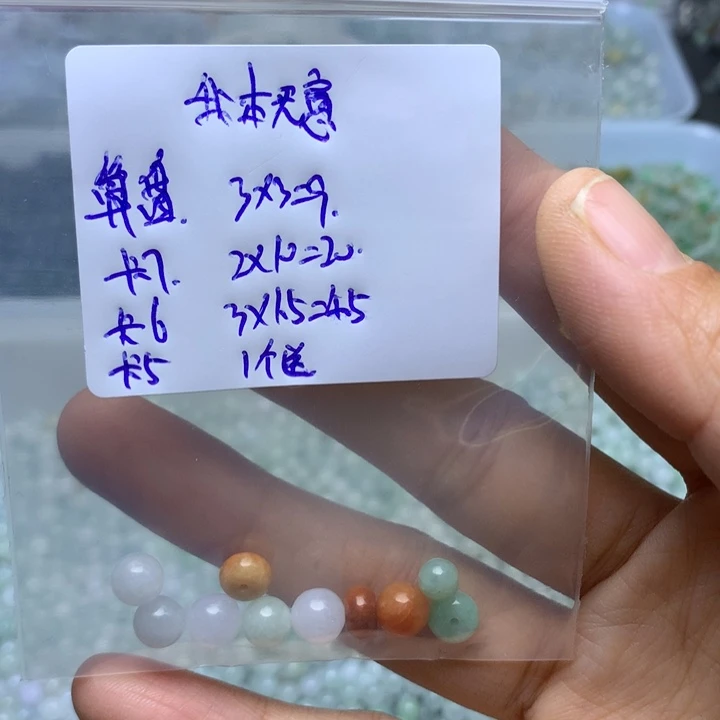 本天意
算盘. 3×3=9.
卡7. 2×10=20.
卡6 3×15=45
卡5 1个送